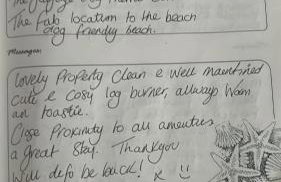 The Fab location to the beach
dog friendly beach.
Messages
lovely Property Clean & well maintined
cute & cosy log burner, allways warm
an toastie.
Close Proximity to all amenities
a great Stay. Thankyou
Will defo be back! x